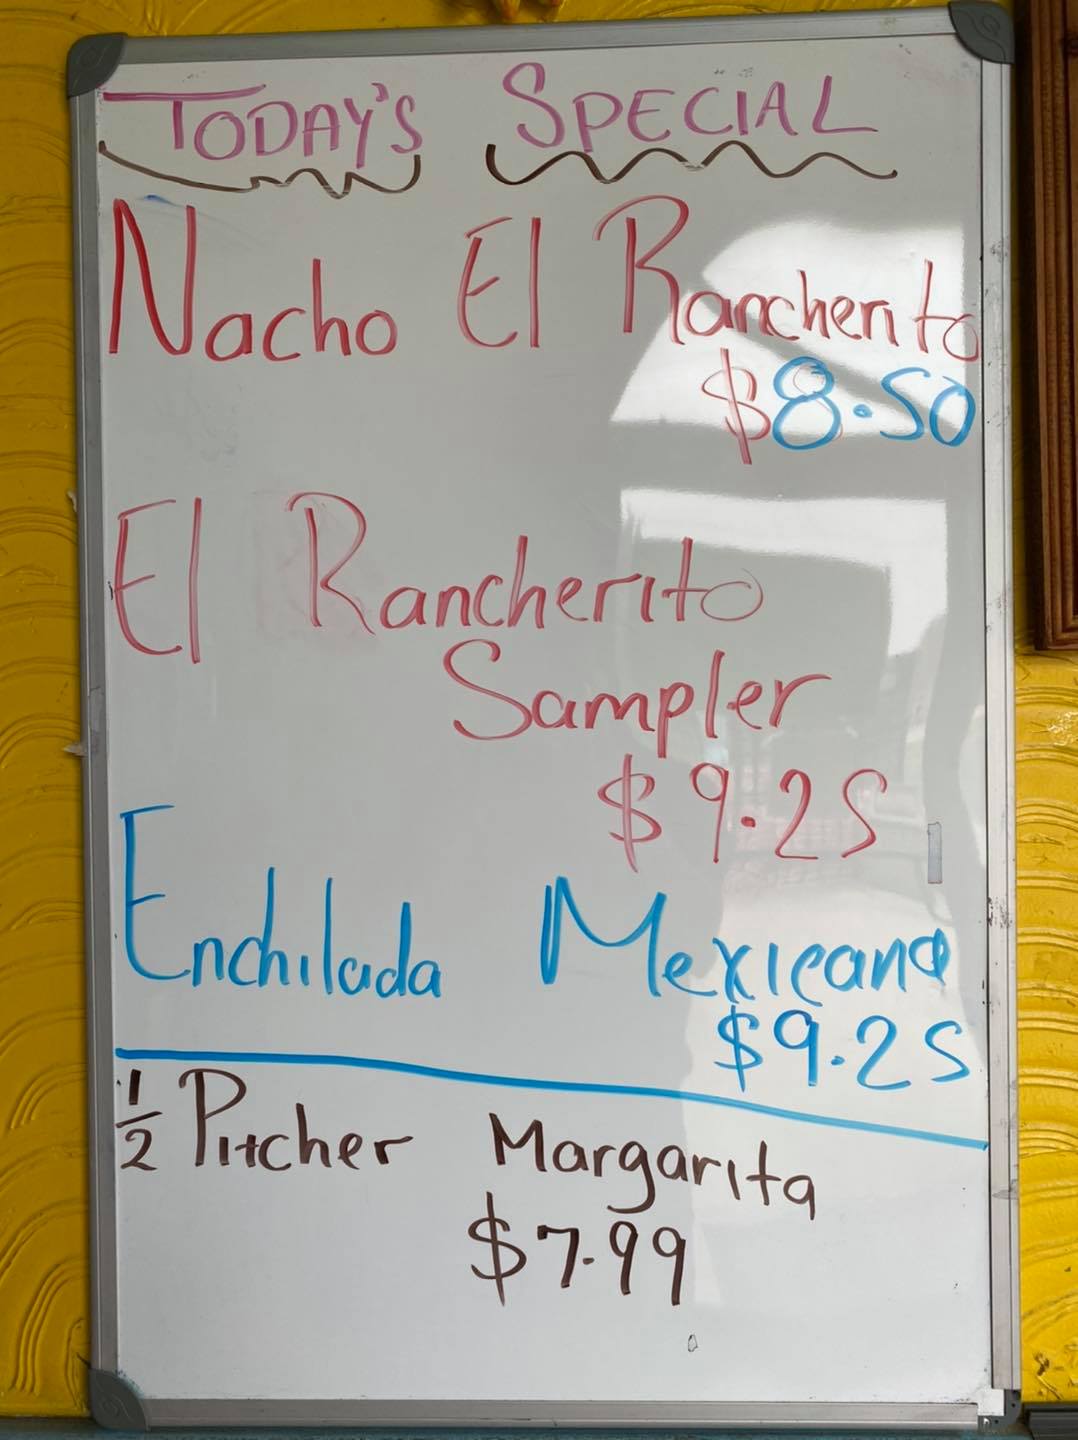 TODAY'S SPECIAL
Nacho El Rancherito
$8.50
El Rancherito
Sampler
$9.25
Enchilada Mexicana
$9.25
½ Pitcher Margarita
$7.99